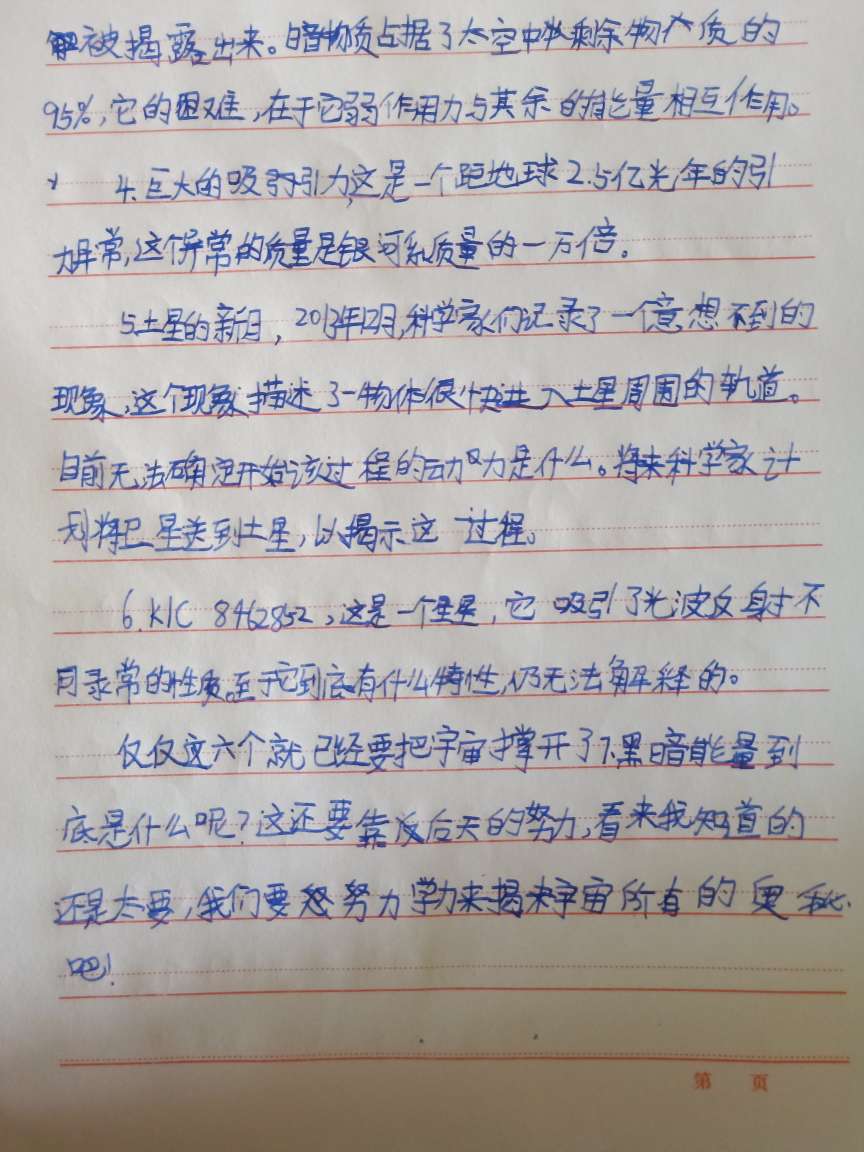 被揭露出来。暗物质占据了太空中剩余物质的
95%,它的困难,在于它弱作用力与其余的能量相互作用。
4.巨大的吸引力,这是一个距地球2.5亿光年的引
力异常,这个异常的质量是银河系质量的一万倍。
5.土星的新月,2013年12月,科学家们记录了一个意想不到的
现象,这个现象描述了一物体很快进入土星周围的轨道。
目前无法确定开始该过程的动力是什么。将来科学家计
划将卫星送到土星,以揭示这 过程。
6.KIC 8462852,这是一个星星,它吸引了光波反射不
同寻常的性质。至于它到底有什么特性,仍无法解释的。
仅仅这六个就已经要把宇宙撑开了,黑暗能量到
底是什么呢?这还要靠后天的努力,看来我知道的
还是太要,我们要努力学力来揭未宇宙所有的奥秘
吧!
第 页